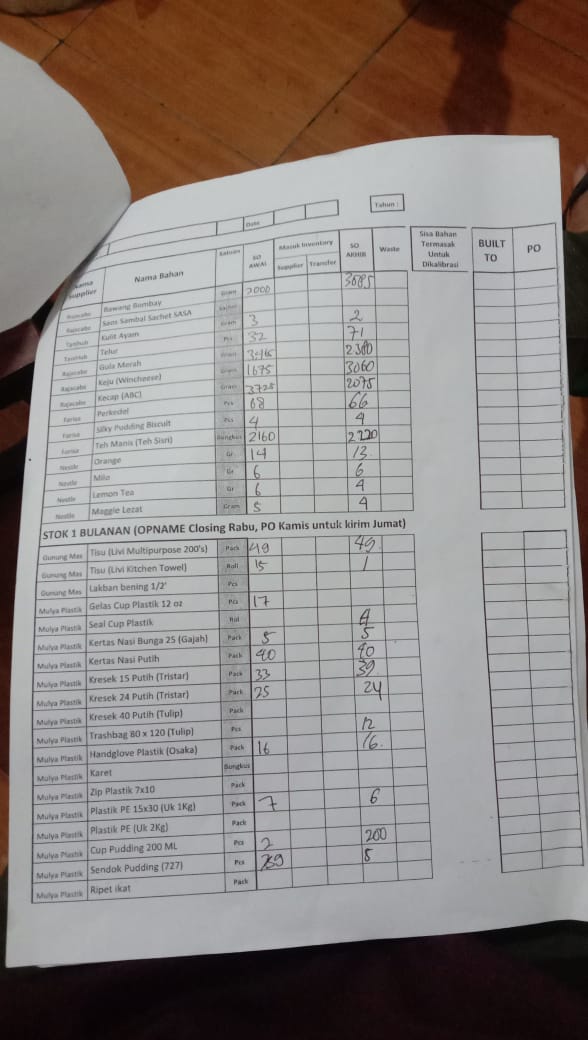 Date
Tahun :
Nama Supplier Nama Bahan Satuan SO AWAL Masuk Inventory Supplier Transfer SO AKHIR Waste Sisa Bahan Termasak Untuk Dikalibrasi BUILT TO PO
Rajacabe Bawang Bombay Gram 2000 3685
Rajacabe Saos Sambal Sachet SASA Sachet
Kulit Ayam Gram 3 2
Telur Pcs 32 71
Rajacabe Gula Merah Gram 2380
Rajacabe Keju (Wincheese) Gram 1675 3060
Rajacabe Kecap (ABC) Gram 3725 2075
Farisa Perkedel Pcs 68 66
Farisa Silky Pudding Biscuit Pcs 4 4
Farisa Teh Manis (Teh Sisri) Bungkus 2160 2220
Nestle Orange Gr 14 13
Nestle Milo Gr 6 6
Nestle Lemon Tea Gr 6 4
Nestle Maggie Lezat Gram 5 4
STOK 1 BULANAN (OPNAME Closing Rabu, PO Kamis untuk kirim Jumat)
Gunung Mas Tisu (Livi Multipurpose 200's) Pack 49 49
Gunung Mas Tisu (Livi Kitchen Towel) Roll 15 1
Gunung Mas Lakban bening 1/2' Pcs
Mulya Plastik Gelas Cup Plastik 12 oz Pcs 17
Mulya Plastik Seal Cup Plastik Rol 4
Mulya Plastik Kertas Nasi Bunga 25 (Gajah) Pack 5 5
Mulya Plastik Kertas Nasi Putih Pack 40 40
Mulya Plastik Kresek 15 Putih (Tristar) Pack 33 39
Mulya Plastik Kresek 24 Putih (Tristar) Pack 25 24
Mulya Plastik Kresek 40 Putih (Tulip) Pack
Mulya Plastik Trashbag 80 x 120 (Tulip) Pcs 12
Mulya Plastik Handglove Plastik (Osaka) Pack 16 16
Mulya Plastik Karet Bungkus
Mulya Plastik Zip Plastik 7x10 Pack
Mulya Plastik Plastik PE 15x30 (Uk 1Kg) Pack 7 6
Mulya Plastik Plastik PE (Uk 2Kg) Pack
Mulya Plastik Cup Pudding 200 ML Pcs 2 200
Mulya Plastik Sendok Pudding (727) Pcs 8
Mulya Plastik Ripet ikat Pack